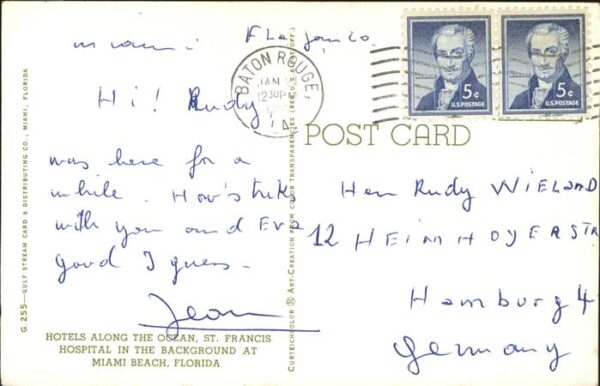 miami Fla Jan 20.
Hi! Rudy
was here for a
while. How's trike
with you and Eva
good I guess -
Jean
HOTELS ALONG THE OCEAN, ST. FRANCIS
HOSPITAL IN THE BACKGROUND AT
MIAMI BEACH, FLORIDA
G.255—GULF STREAM CARD & DISTRIBUTING CO., MIAMI, FLORIDA
CURTEICHCOLOR ART-CREATION FROM COLOR TRANSPARENCIES (REG. U.S.A. PAT. OFF.)
BATON ROUGE,
JAN
1230PM
LA
5¢
U.S. POSTAGE
5¢
U.S. POSTAGE
POST CARD
Herr Rudy WIELAND
12 HEIMHOYERSTR
Hamburg 4
Germany